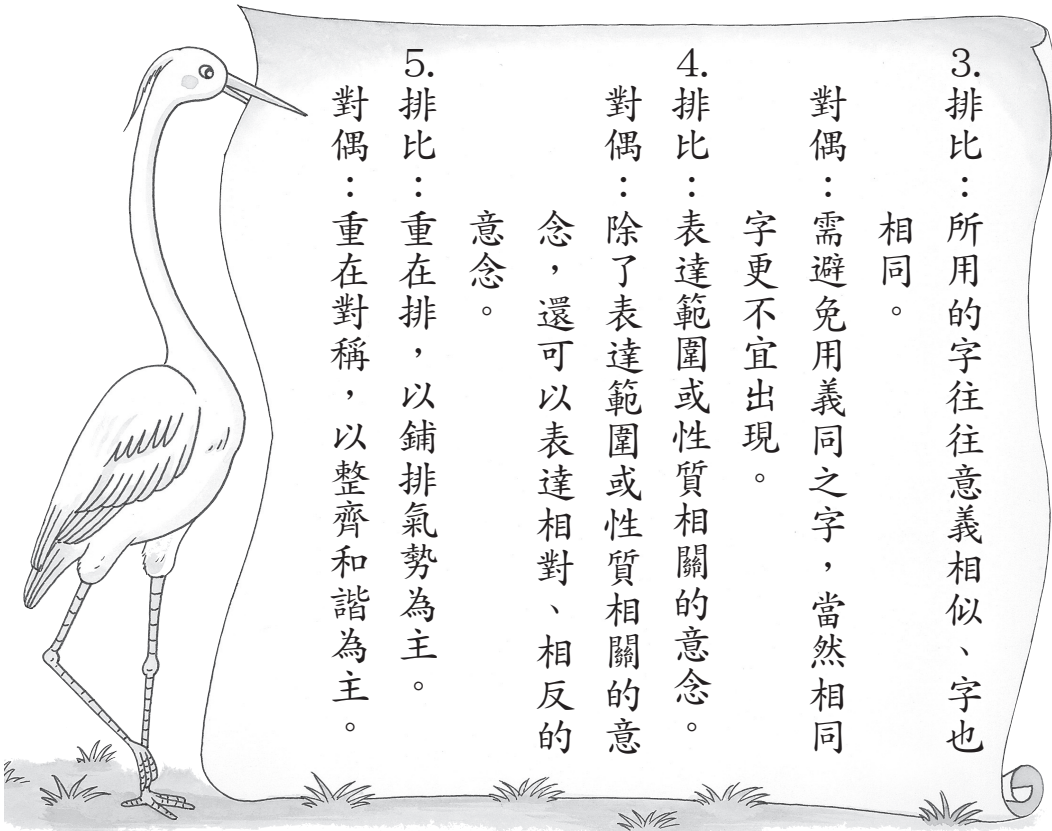 3.排比：所用的字往往意義相似、字也
相同。
對偶：需避免用義同之字，當然相同
字更不宜出現。
4.排比：表達範圍或性質相關的意念。
對偶：除了表達範圍或性質相關的意
念，還可以表達相對、相反的
意念。
5.排比：重在排，以鋪排氣勢為主。
對偶：重在對稱，以整齊和諧為主。